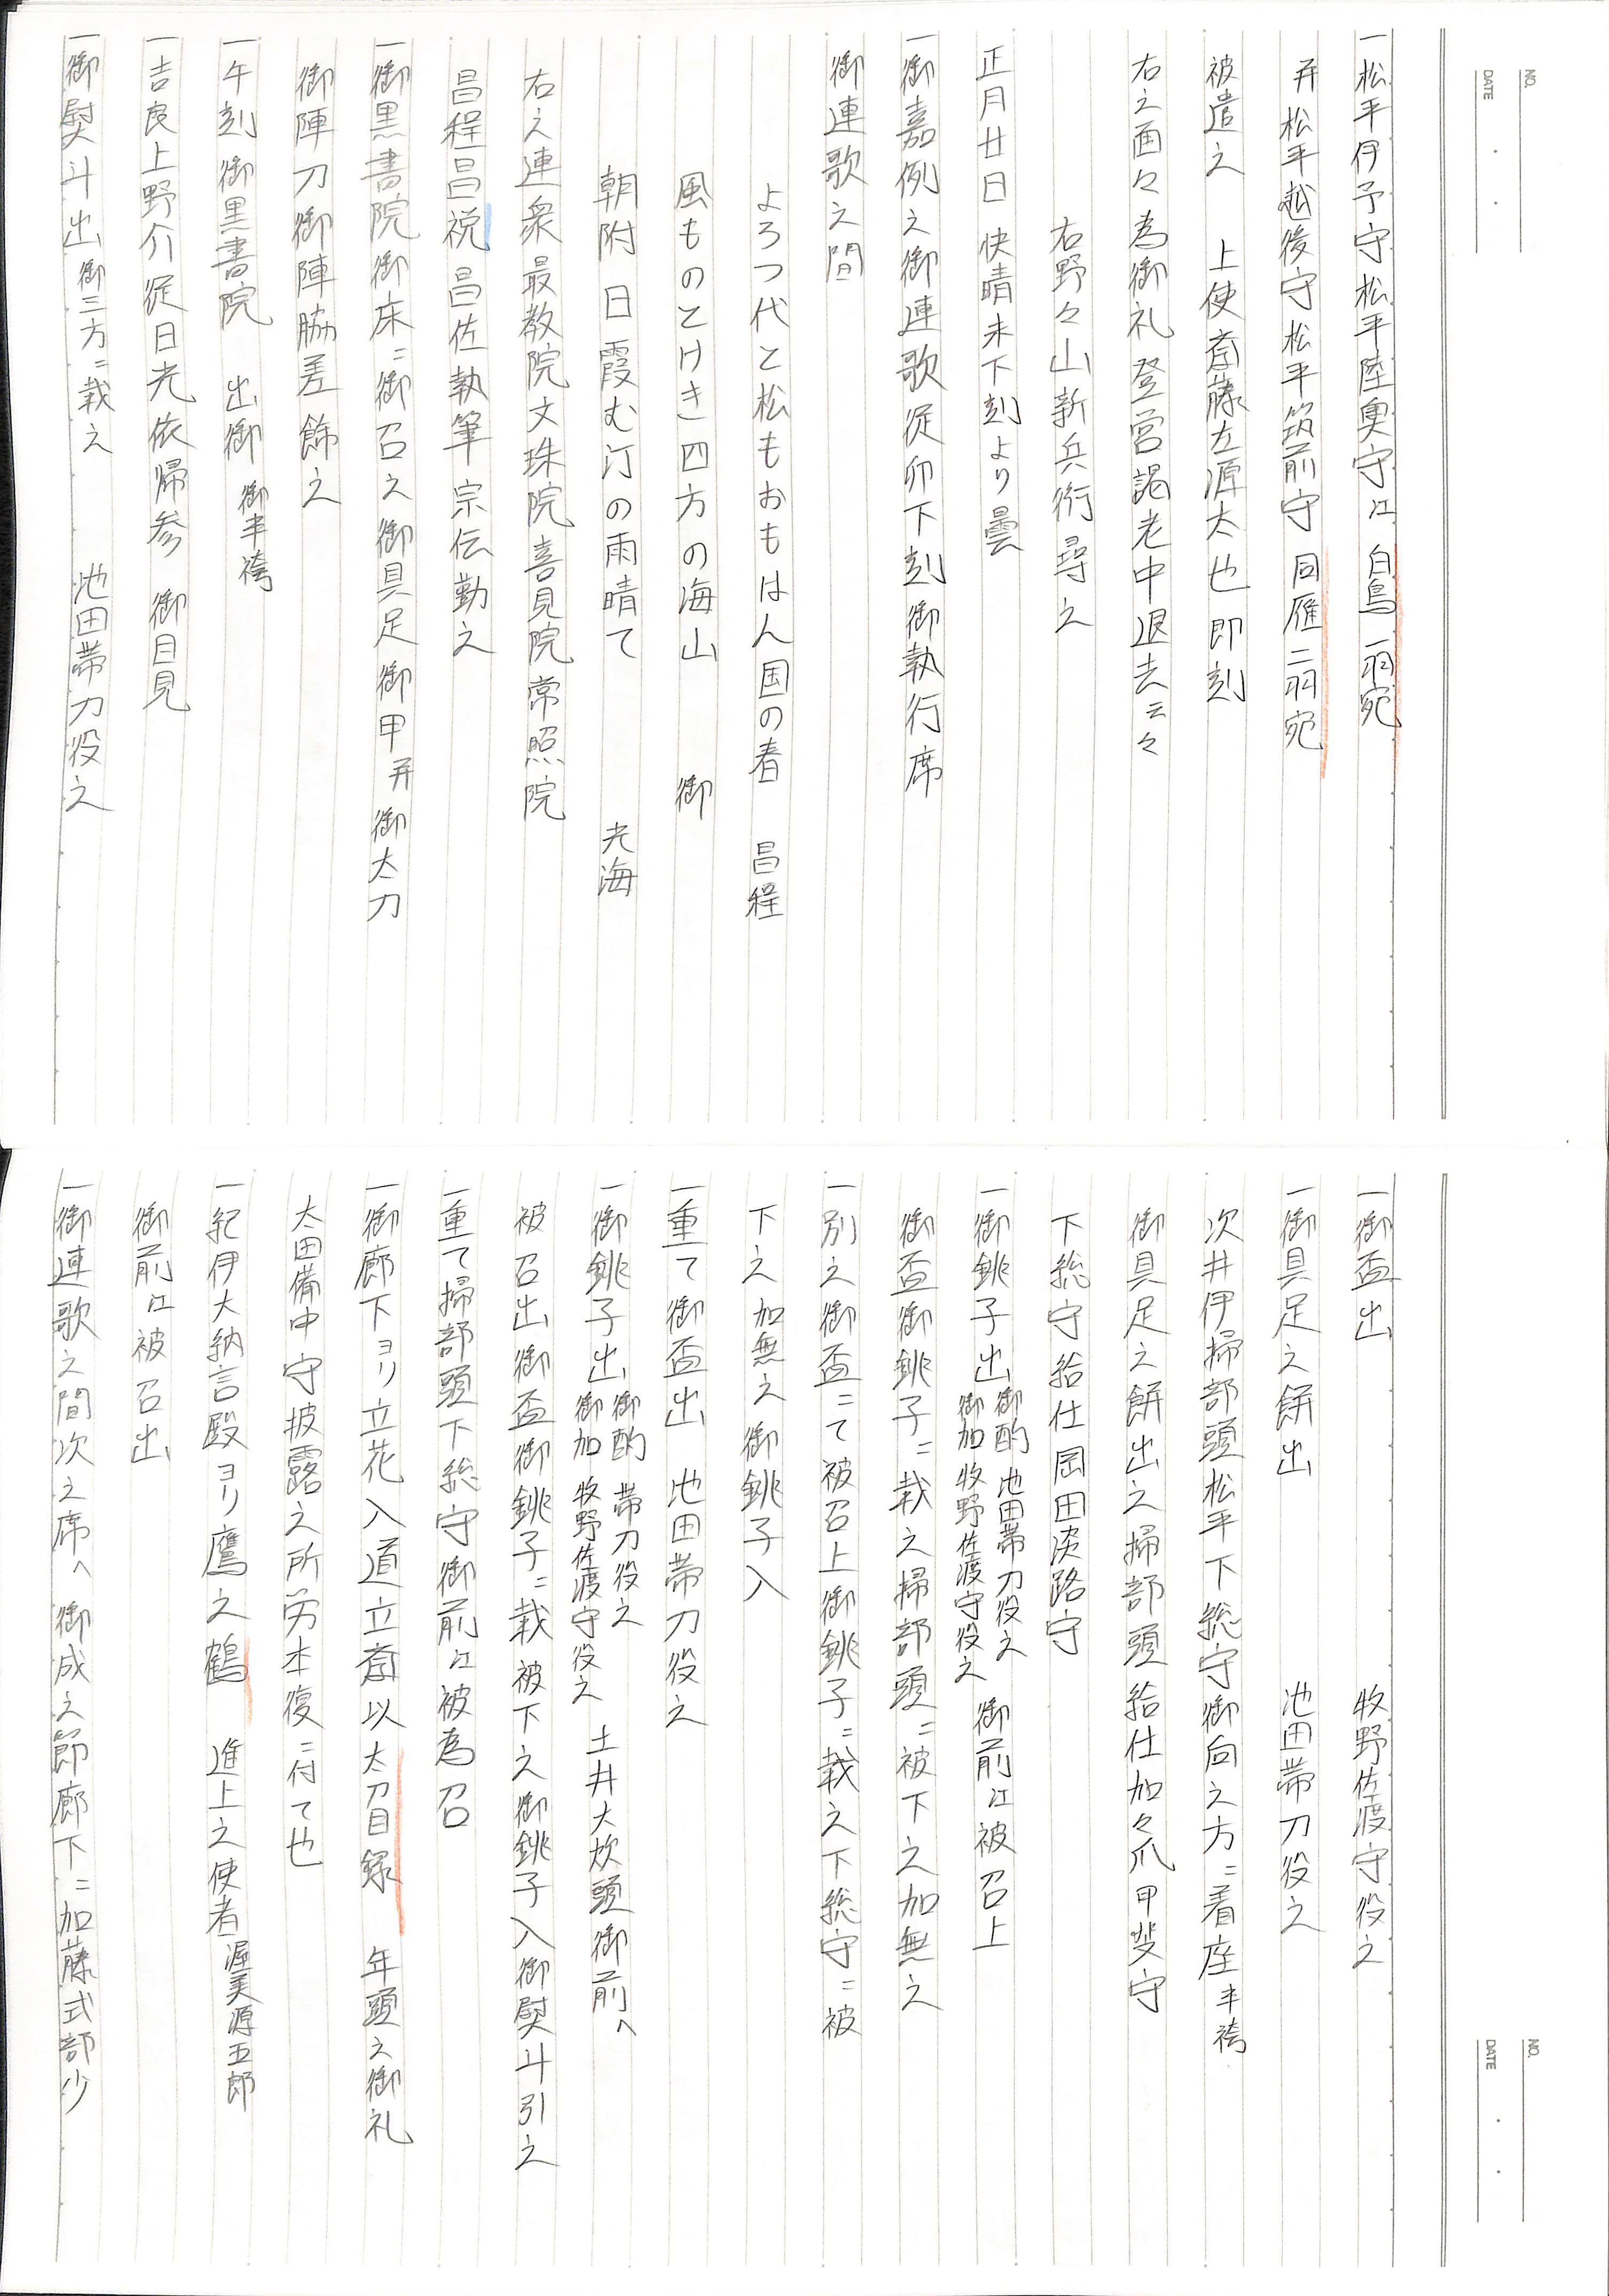 NO.
DATE
一松平伊予守松平陸奥守江 白鳥一羽宛
并松平越後守松平筑前守 同雁二羽宛
被遣之 上使斎藤左源太也即刻
右之面々為御礼登営謁老中退去云々
右野々山新兵衛尋之
正月廿日 快晴未下刻より曇
一御嘉例之御連歌従卯下刻御執行席
御連歌之間
よろつ代と松もおもはん国の春 昌程
風ものとけき四方の海山 御
朝附日霞む汀の雨晴て 光海
右之連衆最教院文珠院喜見院常照院
昌程昌悦昌佐執筆宗伝勤之
一御黒書院御床ニ御召之御具足御甲并御太刀
御陣刀御陣脇差餝之
一午刻御黒書院 出御 御半袴
一吉良上野介従日光依帰参 御目見
一御熨斗出 御三方ニ載之 池田帯刀役之
NO.
DATE
一御盃出 牧野佐渡守役之
一御具足之餅出 池田帯刀役之
次井伊掃部頭松平下総守御向之方ニ着座 半袴
御具足之餅出之掃部頭給仕加々爪甲斐守
下総守給仕岡田淡路守
一御銚子出 御酌 池田帯刀役之 御加 牧野佐渡守役之 御前江被召上
御盃御銚子ニ載之掃部頭ニ被下之加無之
一別之御盃ニて被召上御銚子ニ載之下総守ニ被
下之加無之御銚子入
一重て御盃出 池田帯刀役之
一御銚子出 御酌 帯刀役之 御加 牧野佐渡守役之 土井大炊頭御前へ
被召出御盃御銚子ニ載被下之御銚子入御熨斗引之
一重て掃部頭下総守御前江被為召
一御廊下ヨリ立花入道立斎以太刀目録 年頭之御礼
太田備中守披露之所労本復ニ付て也
一紀伊大納言殿ヨリ鷹之鶴 進上之使者渥美源五郎
御前江被召出
一御連歌之間次之席へ御成之節廊下ニ加藤式部少